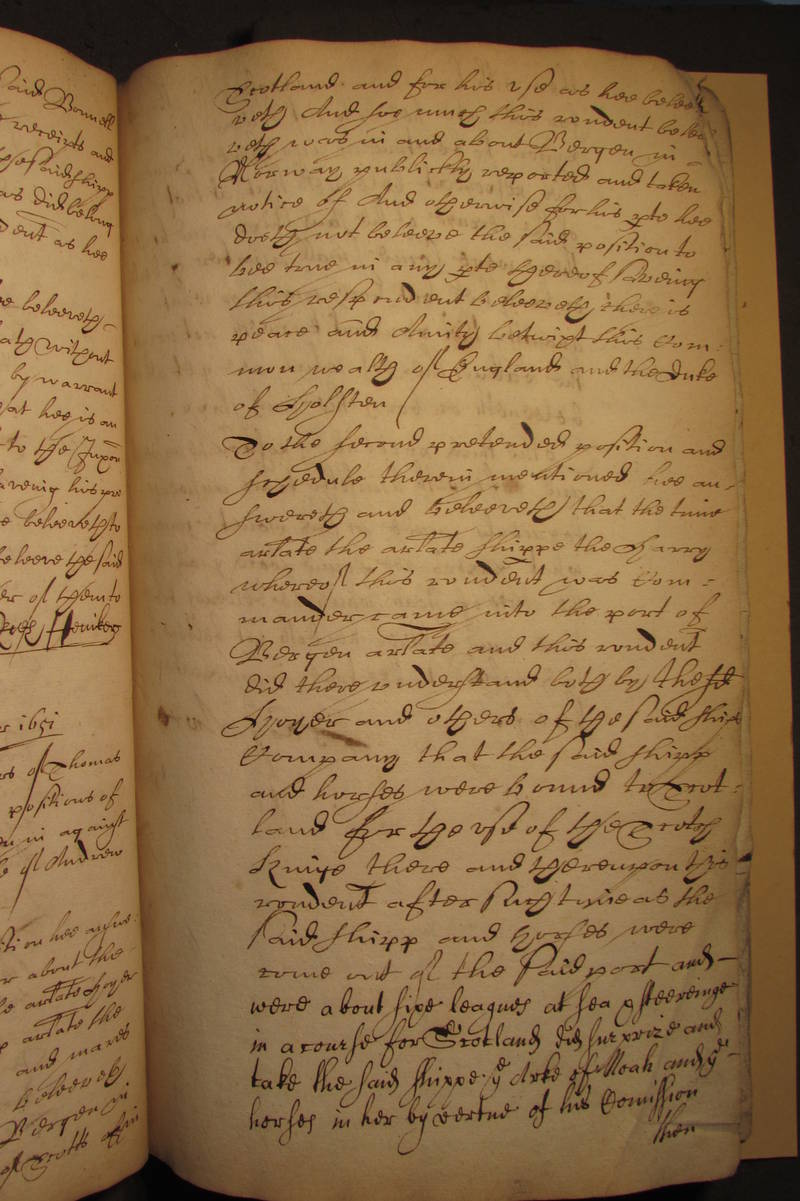 said Bonnell
receipts and
the said shipp
as did belong
dent as hee
ee beleeveth
ath without
by warrant
at hee is an
to the Inpon
saveing his pre
e beleeveth to
beleeve the said
er of them to
Heniker
r 1651
rs of Thomas
positions of
en in against
of Andrew
ition hee answe:
r about the
le arlate Hoyer
arlate the
and mares
beleeveth
Bergen in
of Scotts
Scotland and for his use as hee belee
veth And soe much this rendent belee
veth was in and about Bergen in
Norway publickly reported and taken
notice of And otherwise for his pte hee
doeth not beleeve the said position to
bee true in any pte thereof saveing
this respondent beleeveth there is
peace and Amity betwixt this Com:
mon wealth of England and the Duke
of Holsten
To the second pretended position and
schedule therein mentioned hee an-
swereth and beleeveth that the time
arlate the arlate shippe the Harry
whereof this rondent was Com-
mander came into the port of
Bergen arlate and this rondent
did there understand both by the sd
Hoyer and others of the said ship
Company that the said shipp
and horses were bound to Scot-
land for the use of the Scotch
Kinge there and thereupon this
rondent after such time as the
said shipp and horses were
come out of the said port and
were about sixe leagues at sea steereinge
in a course for Scotland did surprize and
take the said shippe ye Arke of Noah and ye
horses in her by vertue of his Comission
then